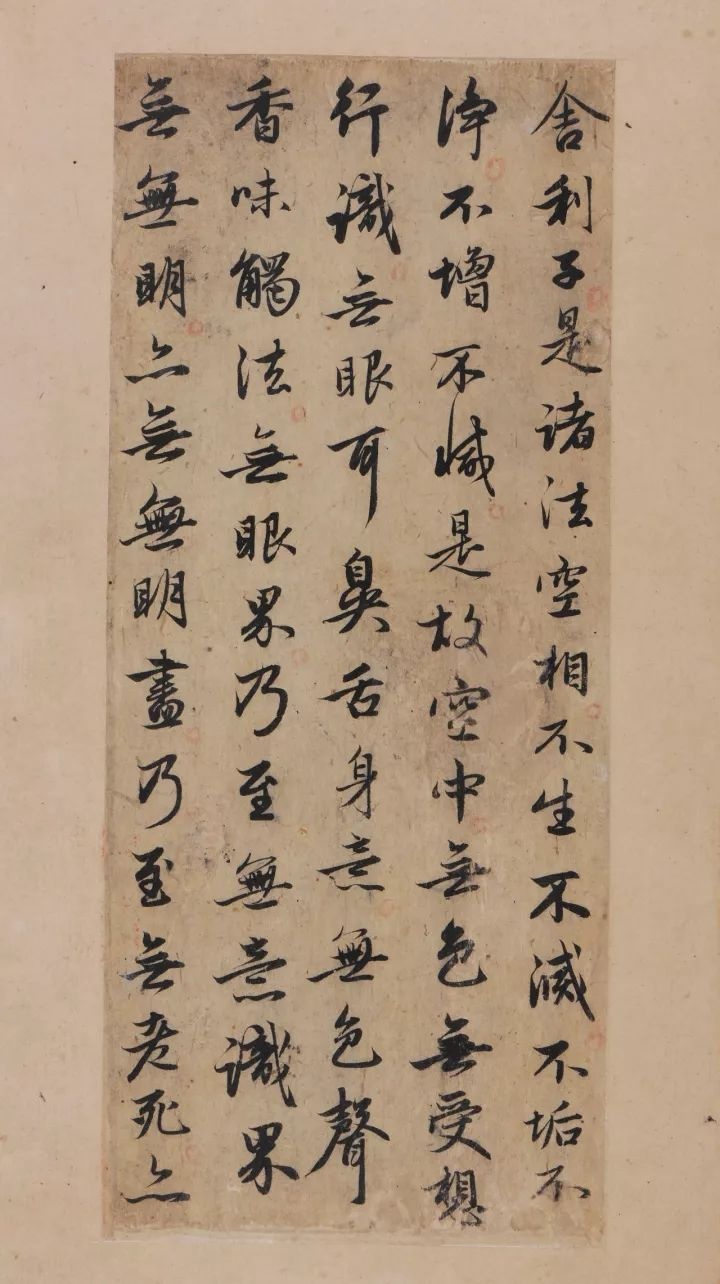 舍利子是諸法空相不生不滅不垢不
淨不增不減是故空中無色無受想
行識无眼耳鼻舌身意無色聲
香味觸法無眼界乃至無意識界
無無明亦無無明盡乃至無老死亦